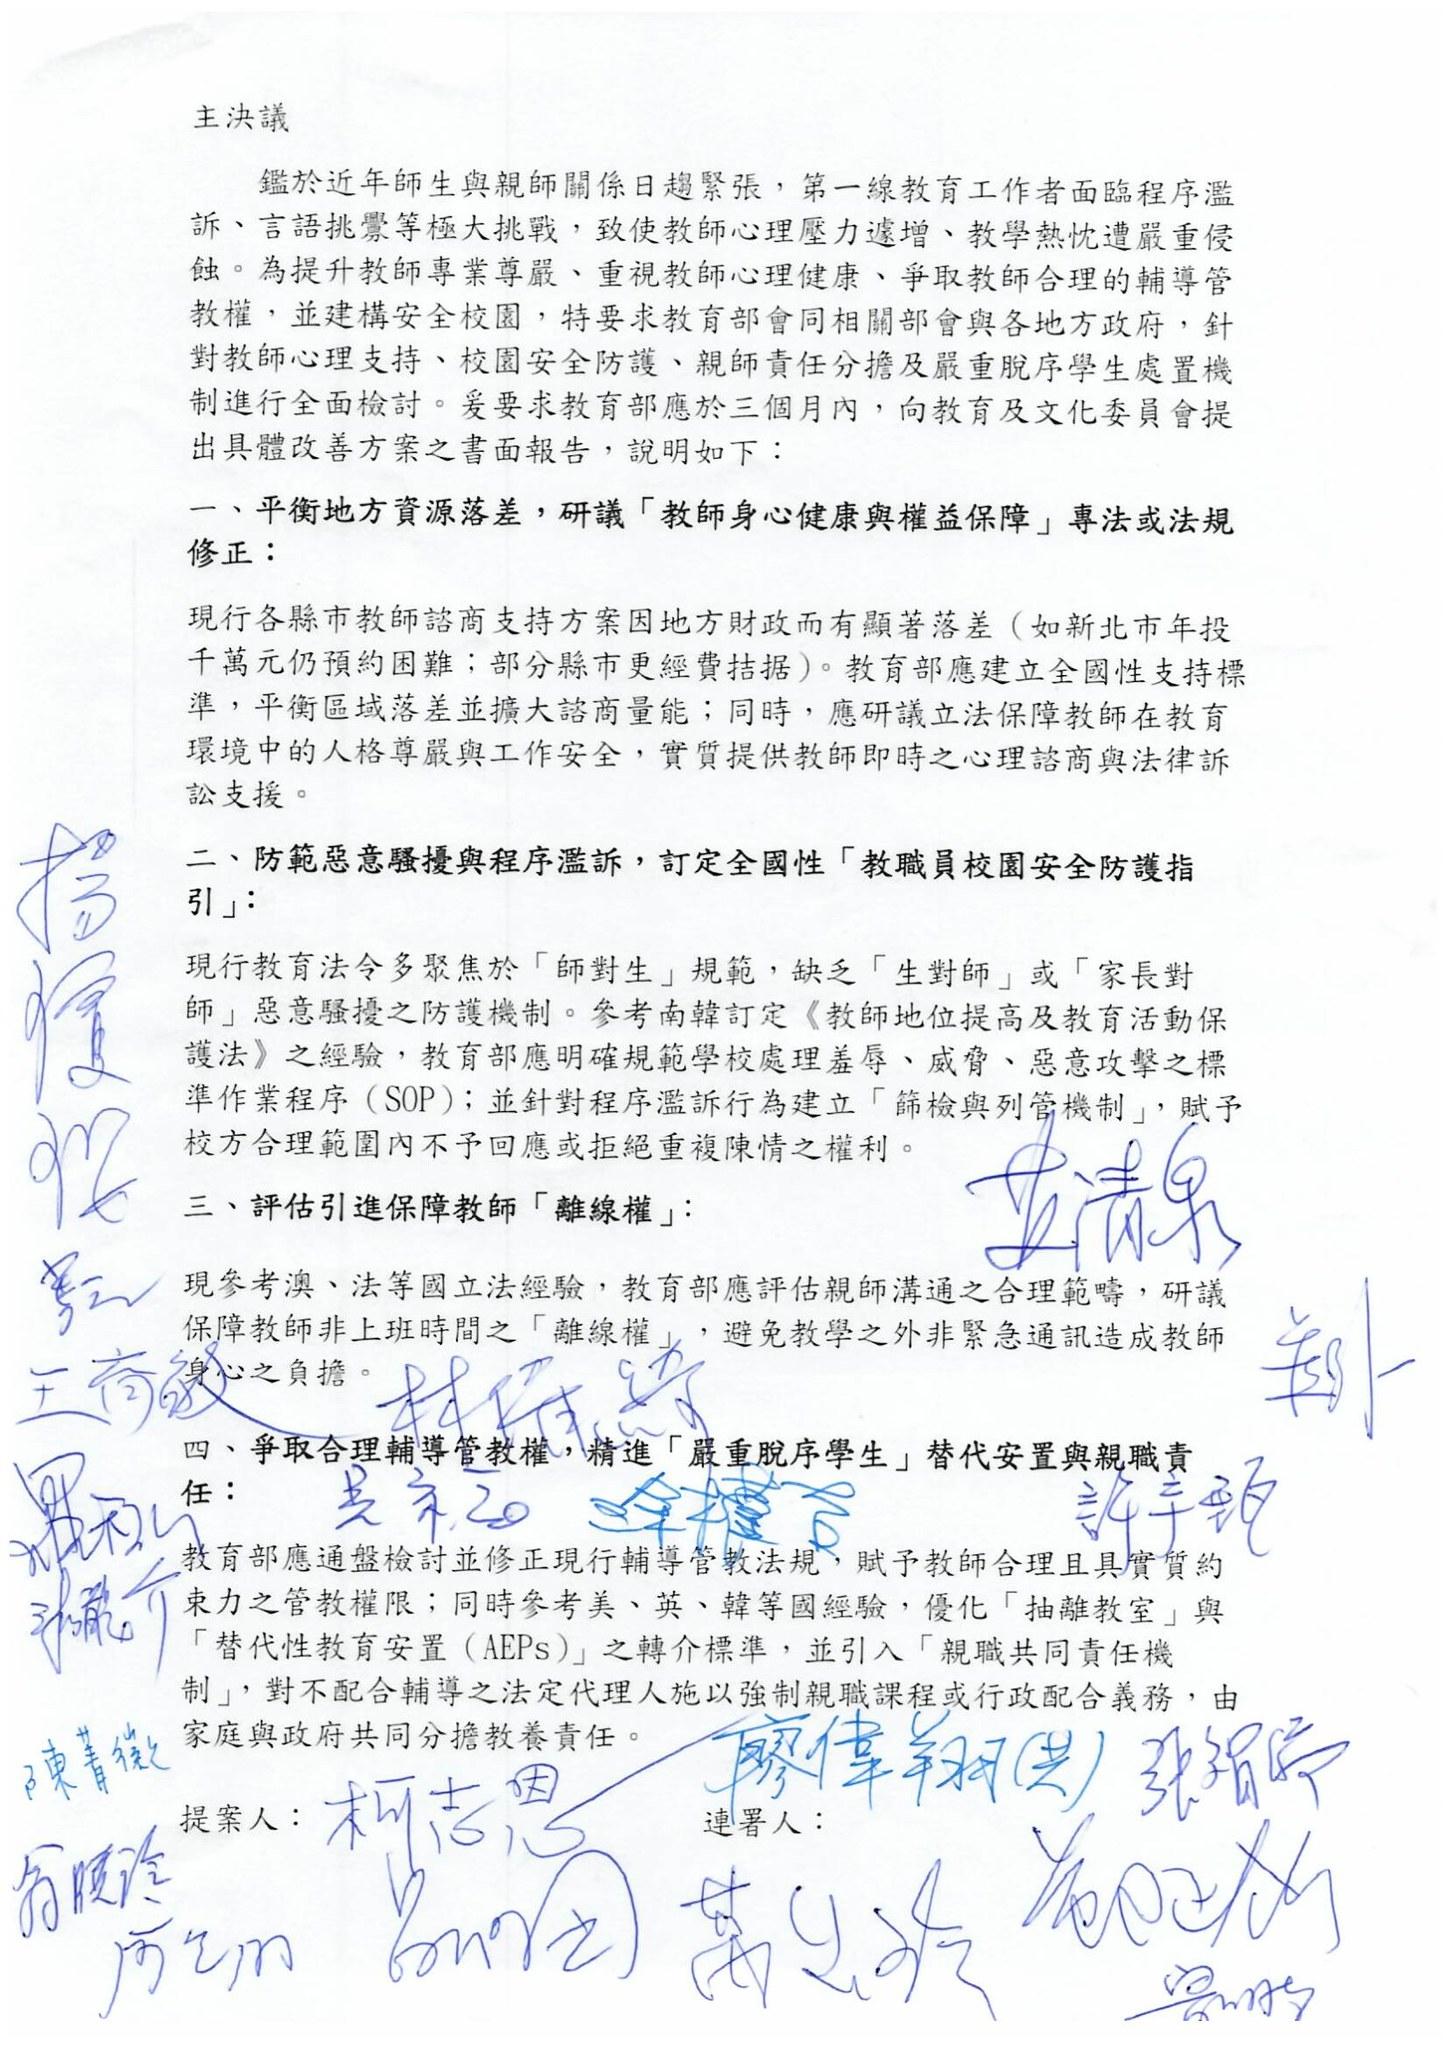 主決議
鑑於近年師生與親師關係日趨緊張，第一線教育工作者面臨程序濫
訴、言語挑釁等極大挑戰，致使教師心理壓力遽增、教學熱忱遭嚴重侵
蝕。為提升教師專業尊嚴、重視教師心理健康、爭取教師合理的輔導管
教權，並建構安全校園，特要求教育部會同相關部會與各地方政府，針
對教師心理支持、校園安全防護、親師責任分擔及嚴重脫序學生處置機
制進行全面檢討。爰要求教育部應於三個月內，向教育及文化委員會提
出具體改善方案之書面報告，說明如下：
一、平衡地方資源落差，研議「教師身心健康與權益保障」專法或法規
修正：
現行各縣市教師諮商支持方案因地方財政而有顯著落差（如新北市年投
千萬元仍預約困難；部分縣市更經費拮据）。教育部應建立全國性支持標
準，平衡區域落差並擴大諮商量能；同時，應研議立法保障教師在教育
環境中的人格尊嚴與工作安全，實質提供教師即時之心理諮商與法律訴
訟支援。
二、防範惡意騷擾與程序濫訴，訂定全國性「教職員校園安全防護指
引」：
現行教育法令多聚焦於「師對生」規範，缺乏「生對師」或「家長對
師」惡意騷擾之防護機制。參考南韓訂定《教師地位提高及教育活動保
護法》之經驗，教育部應明確規範學校處理羞辱、威脅、惡意攻擊之標
準作業程序（SOP）；並針對程序濫訴行為建立「篩檢與列管機制」，賦予
校方合理範圍內不予回應或拒絕重複陳情之權利。
三、評估引進保障教師「離線權」：
現參考澳、法等國立法經驗，教育部應評估親師溝通之合理範疇，研議
保障教師非上班時間之「離線權」，避免教學之外非緊急通訊造成教師
身心之負擔。
四、爭取合理輔導管教權，精進「嚴重脫序學生」替代安置與親職責
任：
教育部應通盤檢討並修正現行輔導管教法規，賦予教師合理且具實質約
束力之管教權限；同時參考美、英、韓等國經驗，優化「抽離教室」與
「替代性教育安置（AEPs）」之轉介標準，並引入「親職共同責任機
制」，對不配合輔導之法定代理人施以強制親職課程或行政配合義務，由
家庭與政府共同分擔教養責任。
提案人：柯志恩
連署人：
廖偉翔(共)
陳菁徽
翁曉玲
王育敏
許宇甄
萬美玲